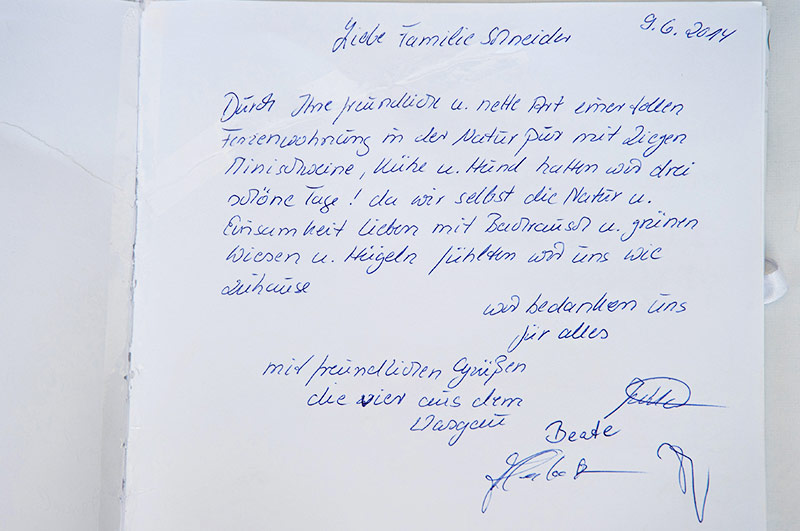 Liebe Familie Schneider
9.6.2014
Durch Ihre freundliche u. nette Art einer tollen
Ferienwohnung in der Natur pur mit Ziegen
Minischweine, Kühe u. Hund hatten wir drei
schöne Tage! da wir selbst die Natur u.
Einsamkeit lieben mit Bachrausch u. grünen
Wiesen u. Hügeln fühlten wir uns wie
zuhause
wir bedanken uns
für alles
mit freundlichen Grüßen
die vier aus dem
Wasgau
Beate